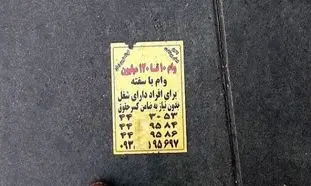 وام ۱۰ تا ۱۲۰ میلیون
وام با سفته
برای افراد دارای شغل
بدون نیاز به ضامن کسر حقوق
۴۴ ۳۰۵۳
۴۴ ۹۵۸۴
۴۴ ۹۵۸۶
۰۹۲۱ ۱۹۵۶۹۷